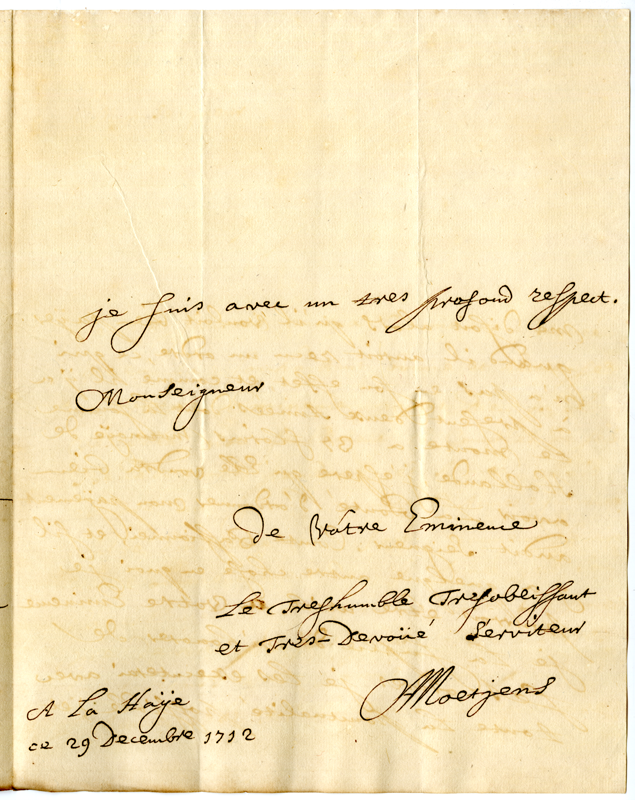 je suis avec un tres profond respect.
Monseigneur
De Vôtre Eminence
Le Treshumble Tresobeissant
et Tres-Devoüé Serviteur
Moetjens
A La Haÿe
ce 29 Decembre 1712